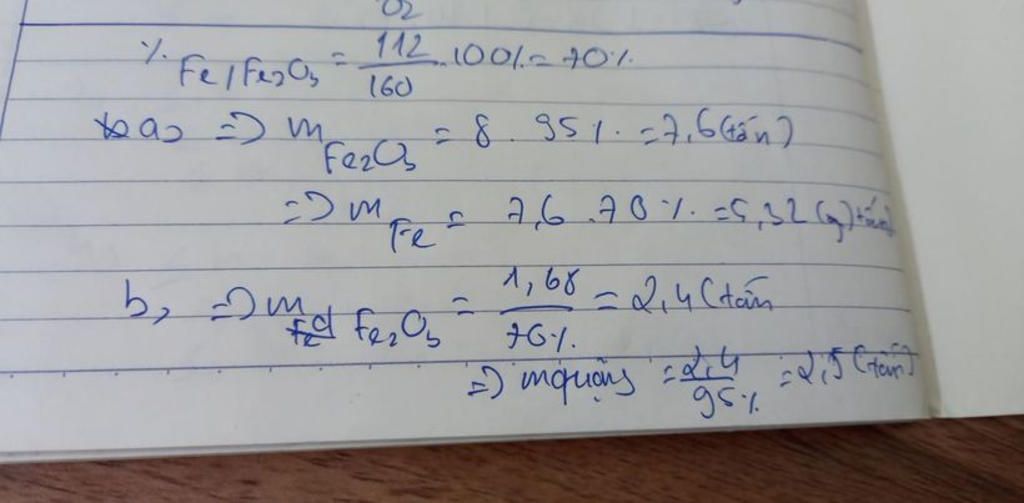 O2
% Fe/Fe2O3 = 112/160 . 100% = 70%
a, => m Fe2O3 = 8 . 95% = 7,6 (tấn)
=> m Fe = 7,6 . 70% = 5,32 (g) tấn
b, => m Fe2O3 = 1,68/70% = 2,4 (tấn
=> mquặng = 2,4/95% = 2,5 (tấn)